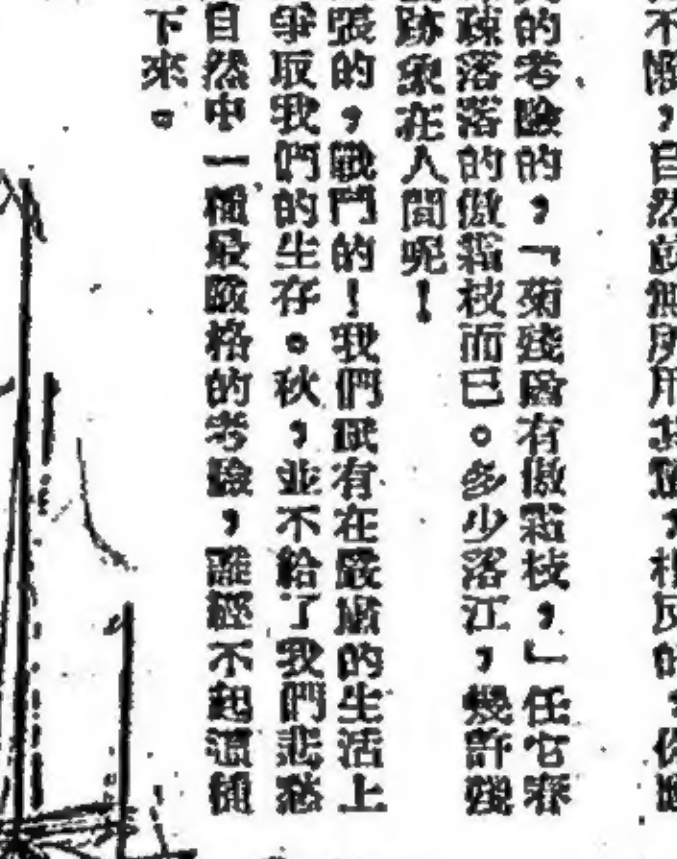 不懈，自然前無所用其殘，相反的，你應
的考驗的，「菊殘猶有傲霜枝，」任它春
疎落落的傲霜枝而已。多少落江，幾許殘
跡象在人間呢！
張的，戰鬥的！我們祇有在嚴肅的生活上
爭取我們的生存。秋，並不給了我們悲愁
自然中一種最嚴格的考驗，誰經不起這種
下來。